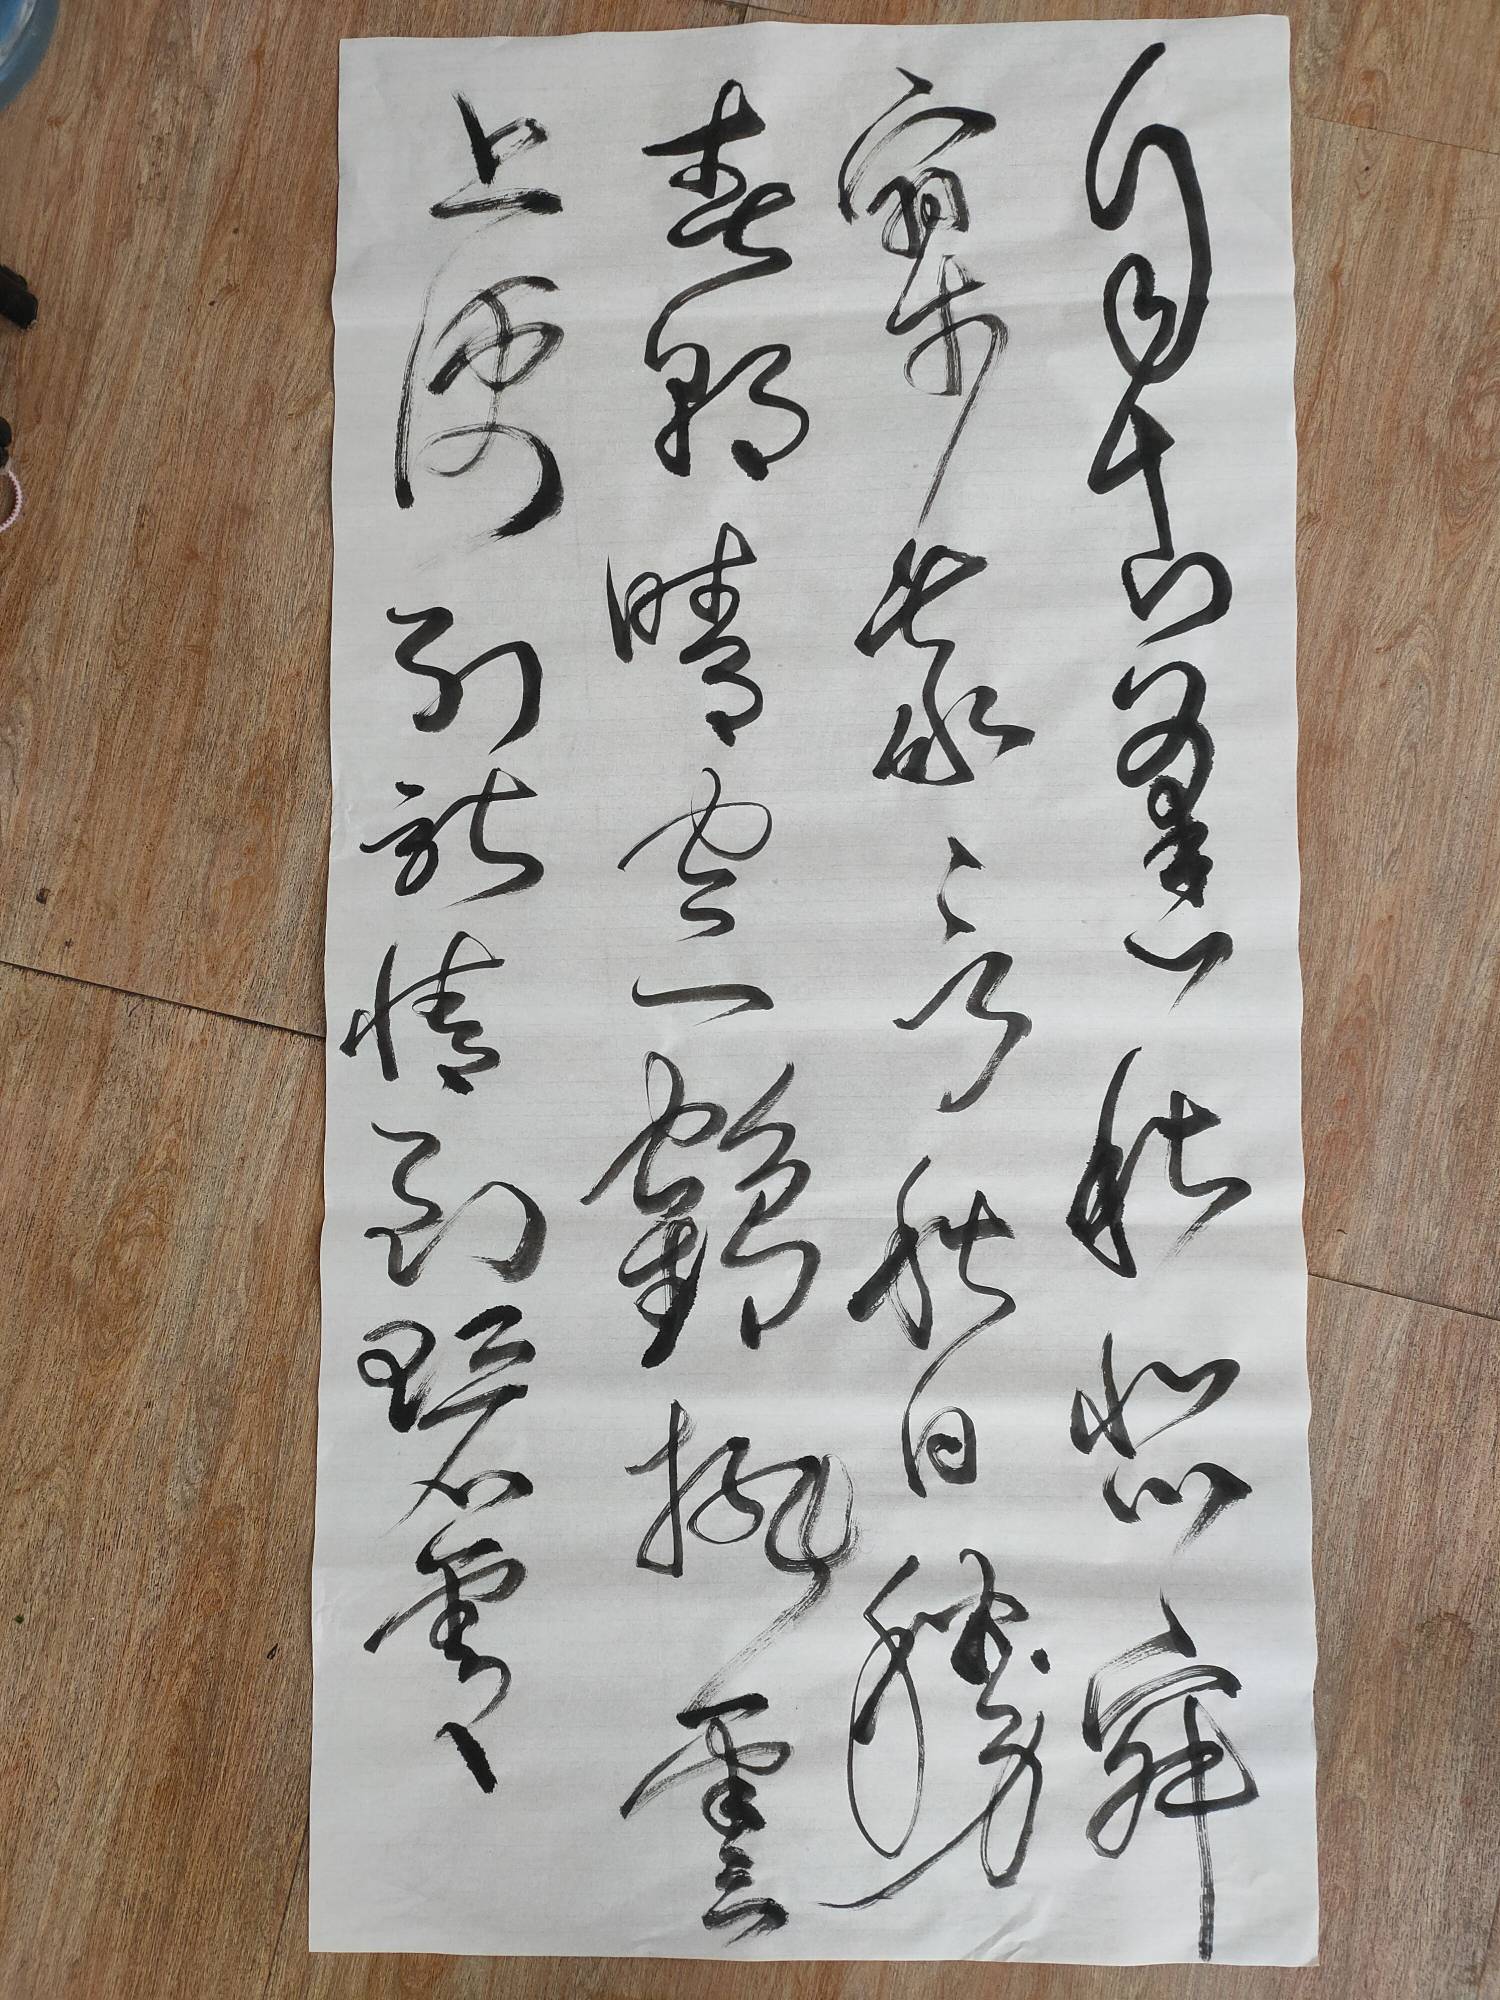 自古逢秋悲寂
寥我言秋日勝
春朝晴空一鶴排雲
上便引詩情到碧霄